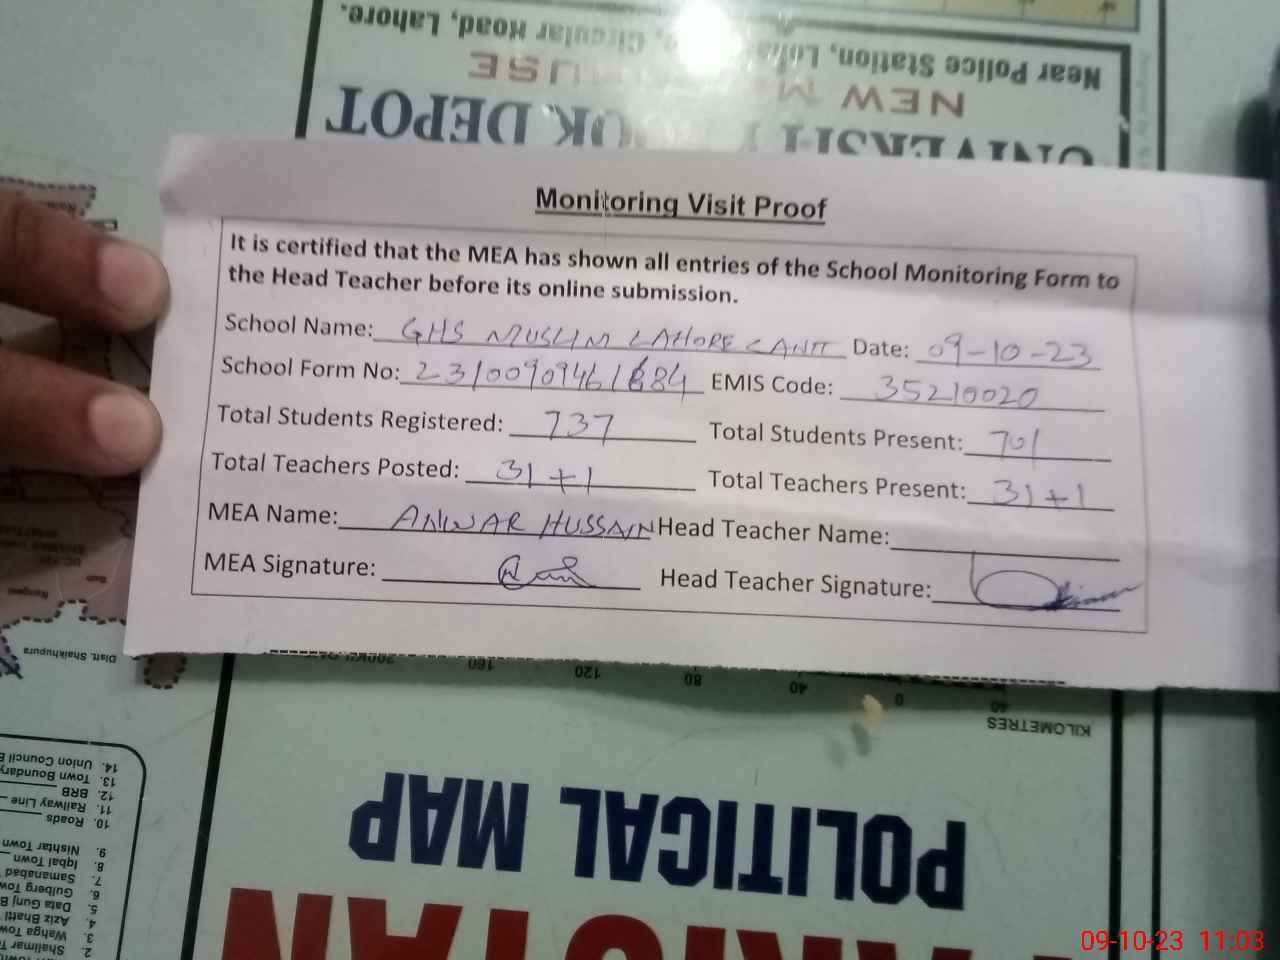 Near Police Station, Loha Circular Road, Lahore.
NEW
UNIVERSITY BOOK DEPOT
Monitoring Visit Proof
It is certified that the MEA has shown all entries of the School Monitoring Form to
the Head Teacher before its online submission.
School Name: GHS MUSLIM LAHORE CANTT Date: 09-10-23
School Form No: 23100909461684 EMIS Code: 35210020
Total Students Registered: 737 Total Students Present: 701
Total Teachers Posted: 31+1 Total Teachers Present: 31+1
MEA Name: ANWAR HUSSAIN Head Teacher Name:
MEA Signature: Head Teacher Signature:
Distt. Sheikhupura
200KM 160 120 80 40 0 40
KILOMETRES
POLITICAL MAP
2. Shalimar
3. Wahga Town
4. Aziz Bhatti
5. Data Gunj B
6. Gulberg Tow
7. Samanabad
8. Iqbal Town
9. Nishtar Town
10. Roads
11. Railway Line
12. BRB
13. Town Boundary
14. Union Council B
09-10-23 11:03